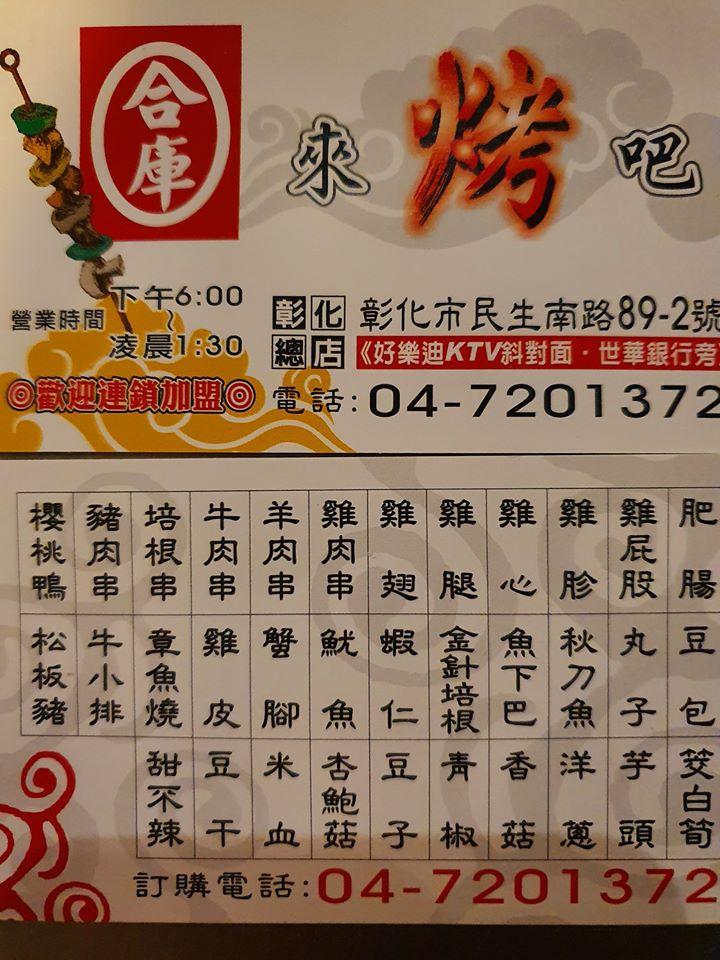 合庫
來烤吧
營業時間 下午6:00
~
凌晨1:30
彰化總店
彰化市民生南路89-2號
《好樂迪KTV斜對面．世華銀行旁
◎歡迎連鎖加盟◎
電話:04-7201372
櫻桃鴨 豬肉串 培根串 牛肉串 羊肉串 雞肉串 雞翅 雞腿 雞心 雞胗 雞屁股 肥腸
松板豬 牛小排 章魚燒 雞皮 蟹腳 魷魚 蝦仁 金針培根 魚下巴 秋刀魚 丸子 豆包
甜不辣 豆干 米血 杏鮑菇 豆子 青椒 香菇 洋蔥 芋頭 筊白筍
訂購電話:04-7201372